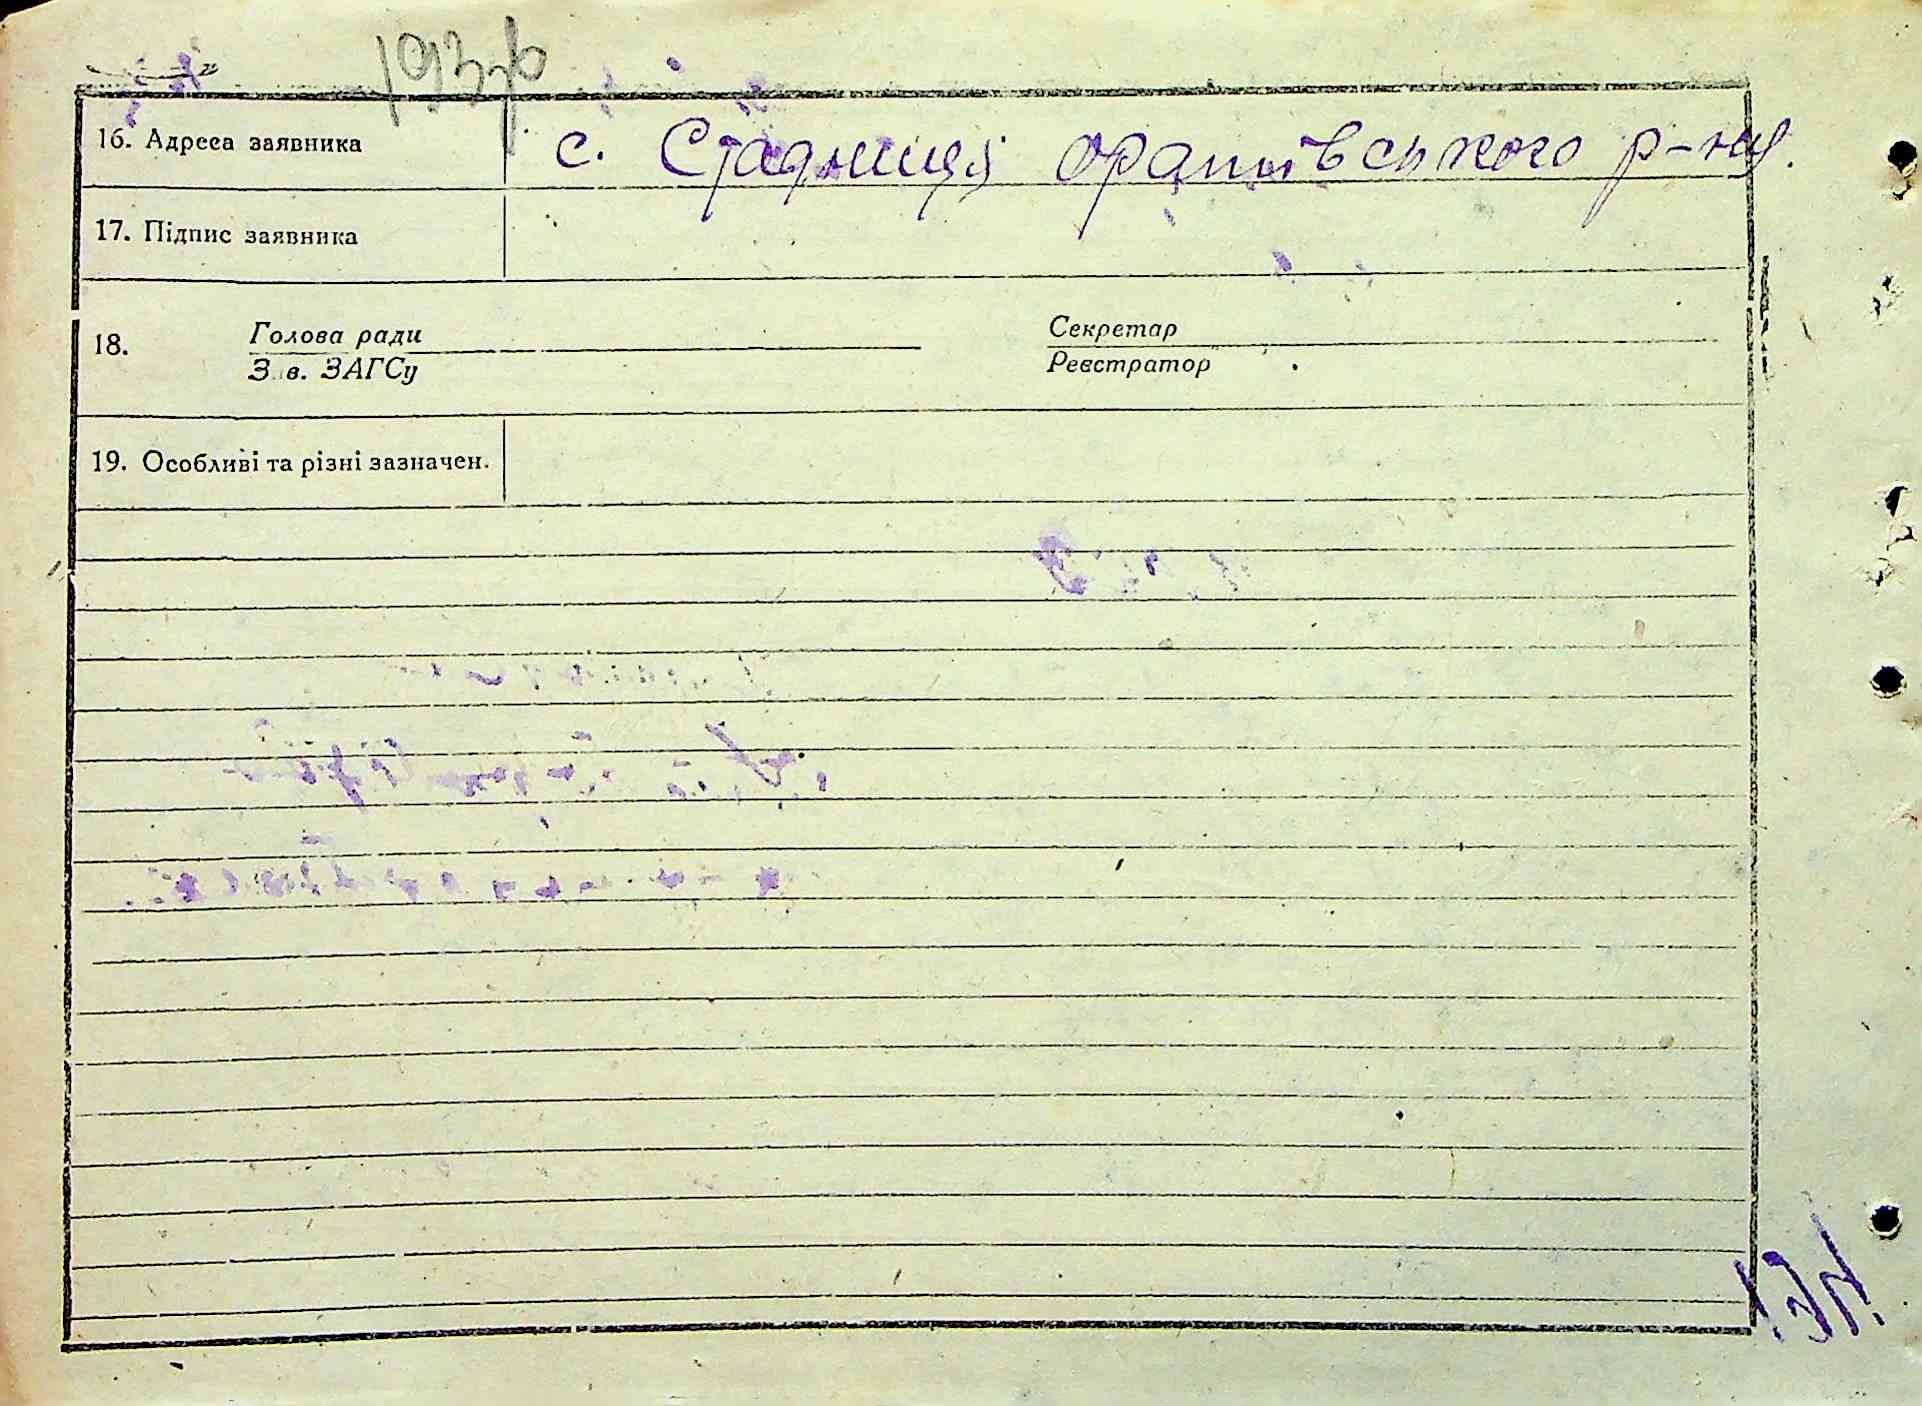 193 р
16. Адреса заявника с. Стадниця оратівського р-ну.
17. Підпис заявника
18. Голова ради Секретар
Зав. ЗАГСу Реєстратор
19. Особливі та різні зазначен.